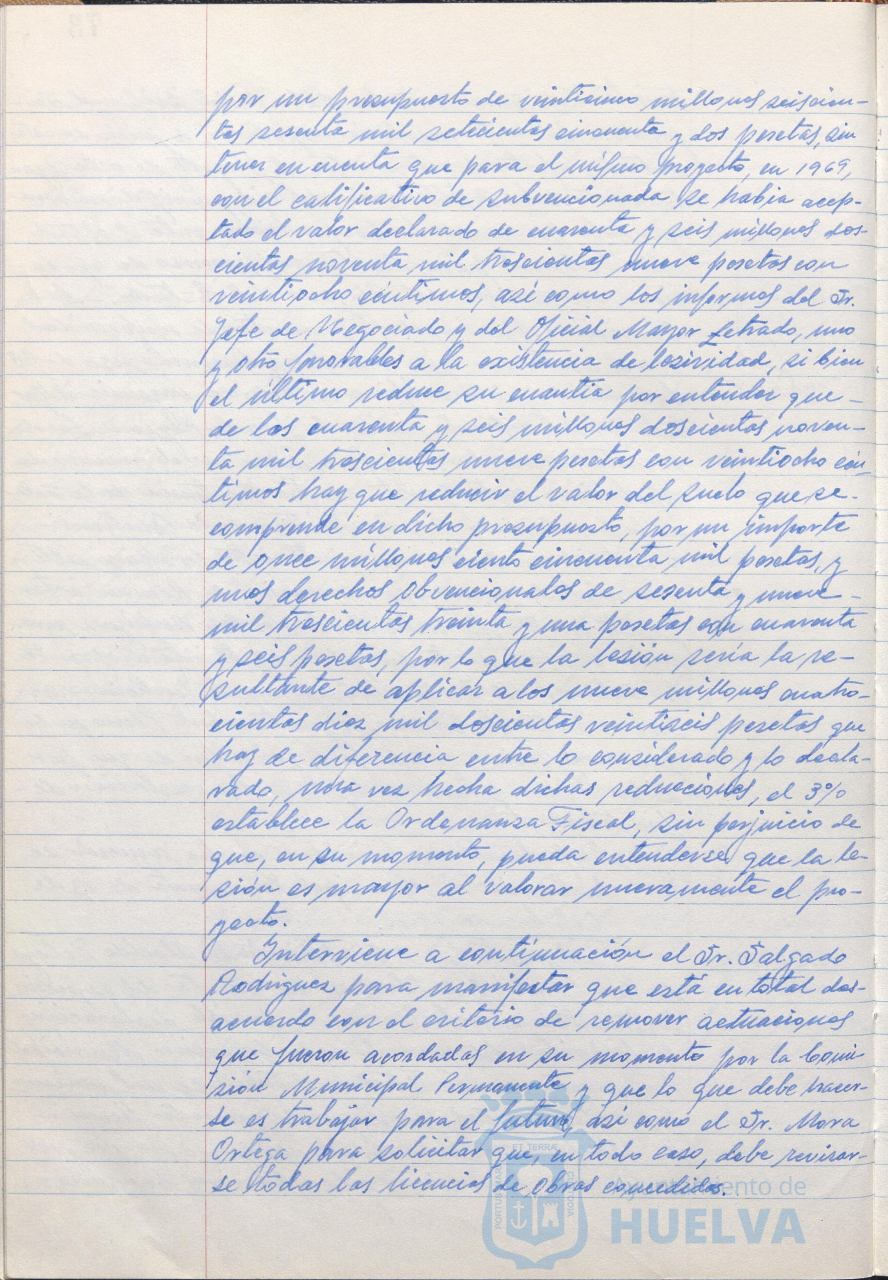 por un presupuesto de veinticinco millones seiscien-
tas sesenta mil setecientas cincuenta y dos pesetas, sin
tener en cuenta que para el mismo proyecto, en 1969,
con el calificativo de subvencionada se habia acep-
tado el valor declarado de cuarenta y seis millones dos-
cientas noventa mil trescientas nueve pesetas con
veintiocho céntimos, así como los informes del Sr.
Jefe de Negociado y del Oficial Mayor Letrado, uno
y otro favorables a la existencia de lesividad, si bien
el último reduce su cuantia por entender que -
de los cuarenta y seis millones doscientas noven-
ta mil trescientas nueve pesetas con veintiocho cén-
timos hay que reducir el valor del suelo que se -
comprende en dicho presupuesto, por un importe
de once millones ciento cincuenta mil pesetas, y
unos derechos obvencionales de sesenta y nueve -
mil trescientas treinta y una pesetas con cuarenta
y seis pesetas, por lo que la lesión sería la re-
sultante de aplicar a los nueve millones cuatro-
cientas diez mil doscientas veintiseis pesetas que
hay de diferencia entre lo considerado y lo decla-
rado, una vez hecha dichas reducciones, el 3%
establece la Ordenanza Fiscal, sin perjuicio de
que, en su momento, pueda entenderse que la le-
sión es mayor al valorar nuevamente el pro-
yecto.
Interviene a continuación el Sr. Salgado
Rodriguez para manifestar que está en total des-
acuerdo con el criterio de remover actuaciones
que fueron acordadas en su momento por la Comi-
sión Municipal Permanente y que lo que debe hacer-
se es trabajar para el futuro, así como el Sr. Mora
Ortega para solicitar que, en todo caso, debe revisar-
se todas las licencias de obras concedidas.
Ayuntamiento de
HUELVA